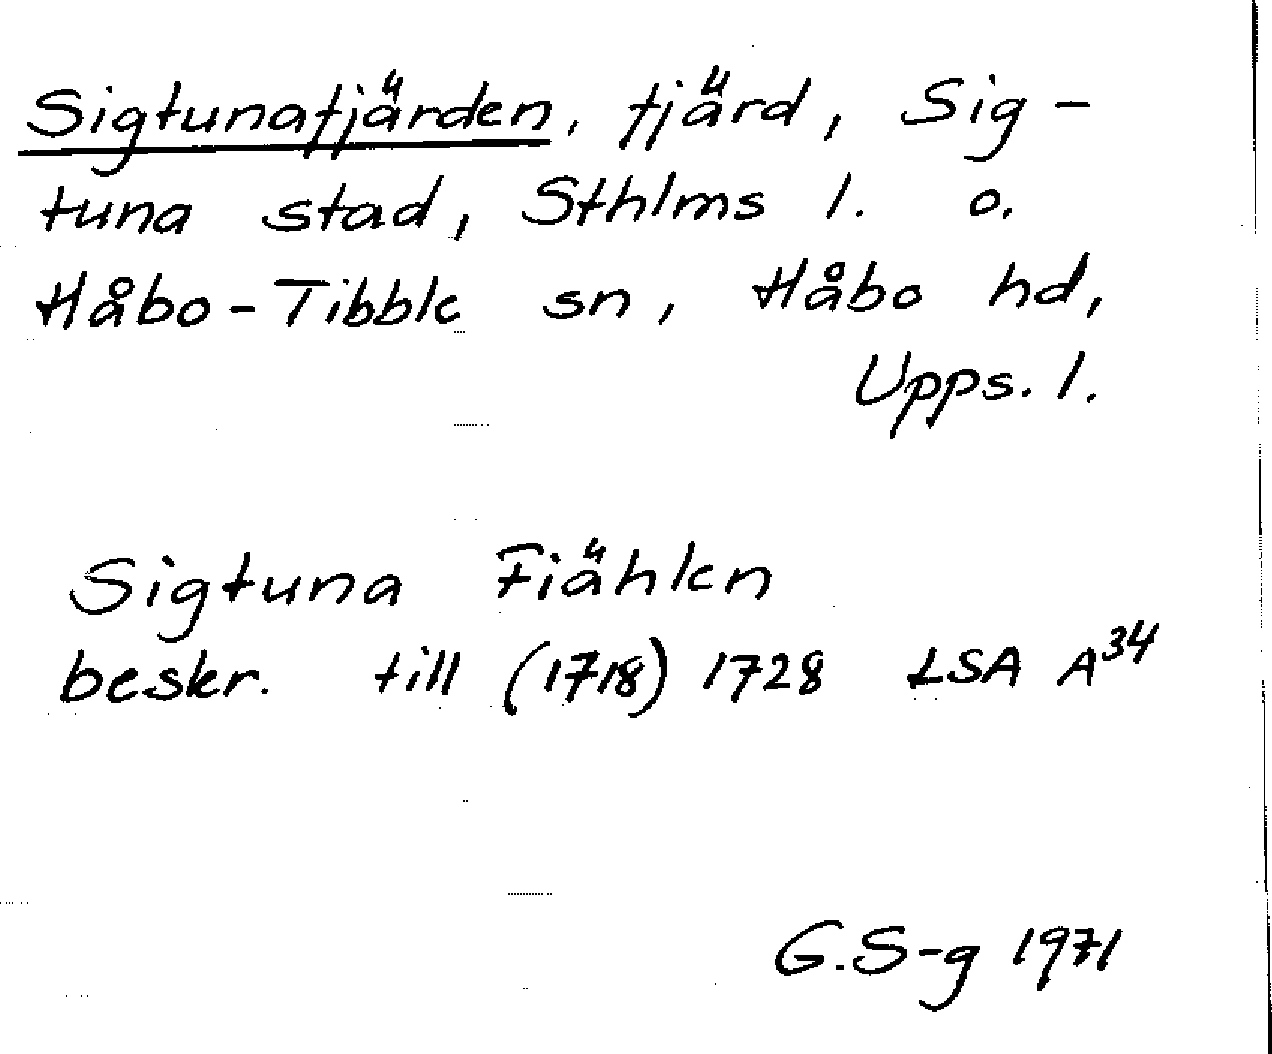 Sigtunafjärden, fjärd, Sig-
tuna stad, Sthlms l. o.
Håbo-Tibble sn, Håbo hd,
Upps. l.
Sigtuna Fiählen
beskr. till (1718) 1728 LSA A³⁴
G.S-g 1971